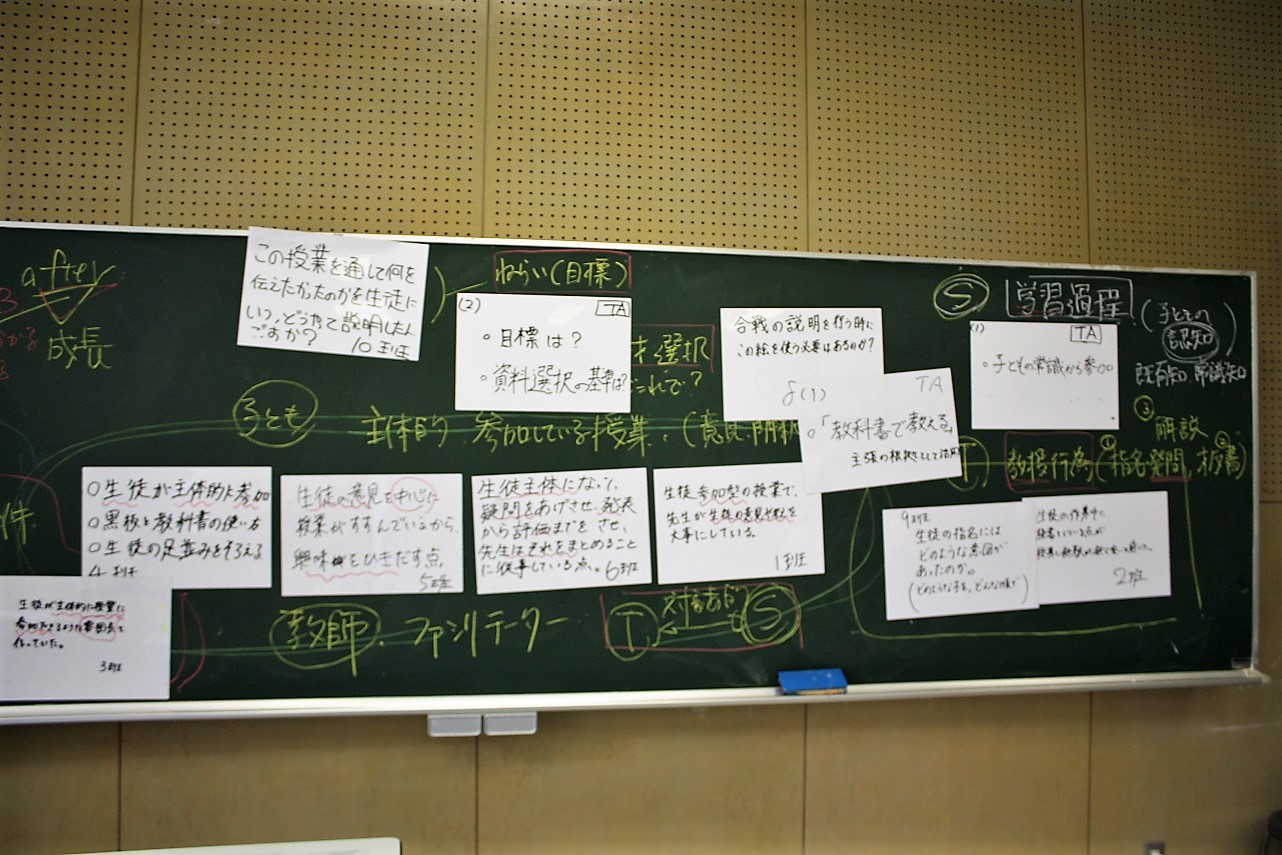 after
成長
この授業を通して何を
伝えたかったのかを生徒に
いつ、どうやって説明したん
ですか?
10班
ねらい(目標)
(2) TA
○目標は?
○資料選択の基準は?
選択
これで?
合戦の説明を行う時に
この絵を使う必要はあるのか?
(1) TA
○「教科書で教える」
主張の根拠として活用
S 学習過程
(子どもの
認知)
既有知 常識知
(1) TA
○子どもの常識から参加
子ども
主体的 参加している授業.(意見
③
解説
T 教授行為(指名発問,板書)
① ②
件
○生徒が主体的に参加
○黒板と教科書の使い方
○生徒の足並みをそろえる
4班
生徒の意見を中心に
授業がすすんでいるから、
興味をひきだす点。
5班
生徒主体になって、
疑問をあげさせ、発表
から評価までをさせ、
先生はそれをまとめること
に従事している点。6班
生徒参加型の授業で、
先生が生徒の意見や考えを
大事にしている。
1班
9班
生徒の指名には
どのような意図が
あったのか。
(どのような子を、どんな順で)
生徒の作業中に
2班
生徒が主体的に授業に
参加できるような雰囲気を
作っていた。
3班
教師. ファシリテーター
T 対話 S